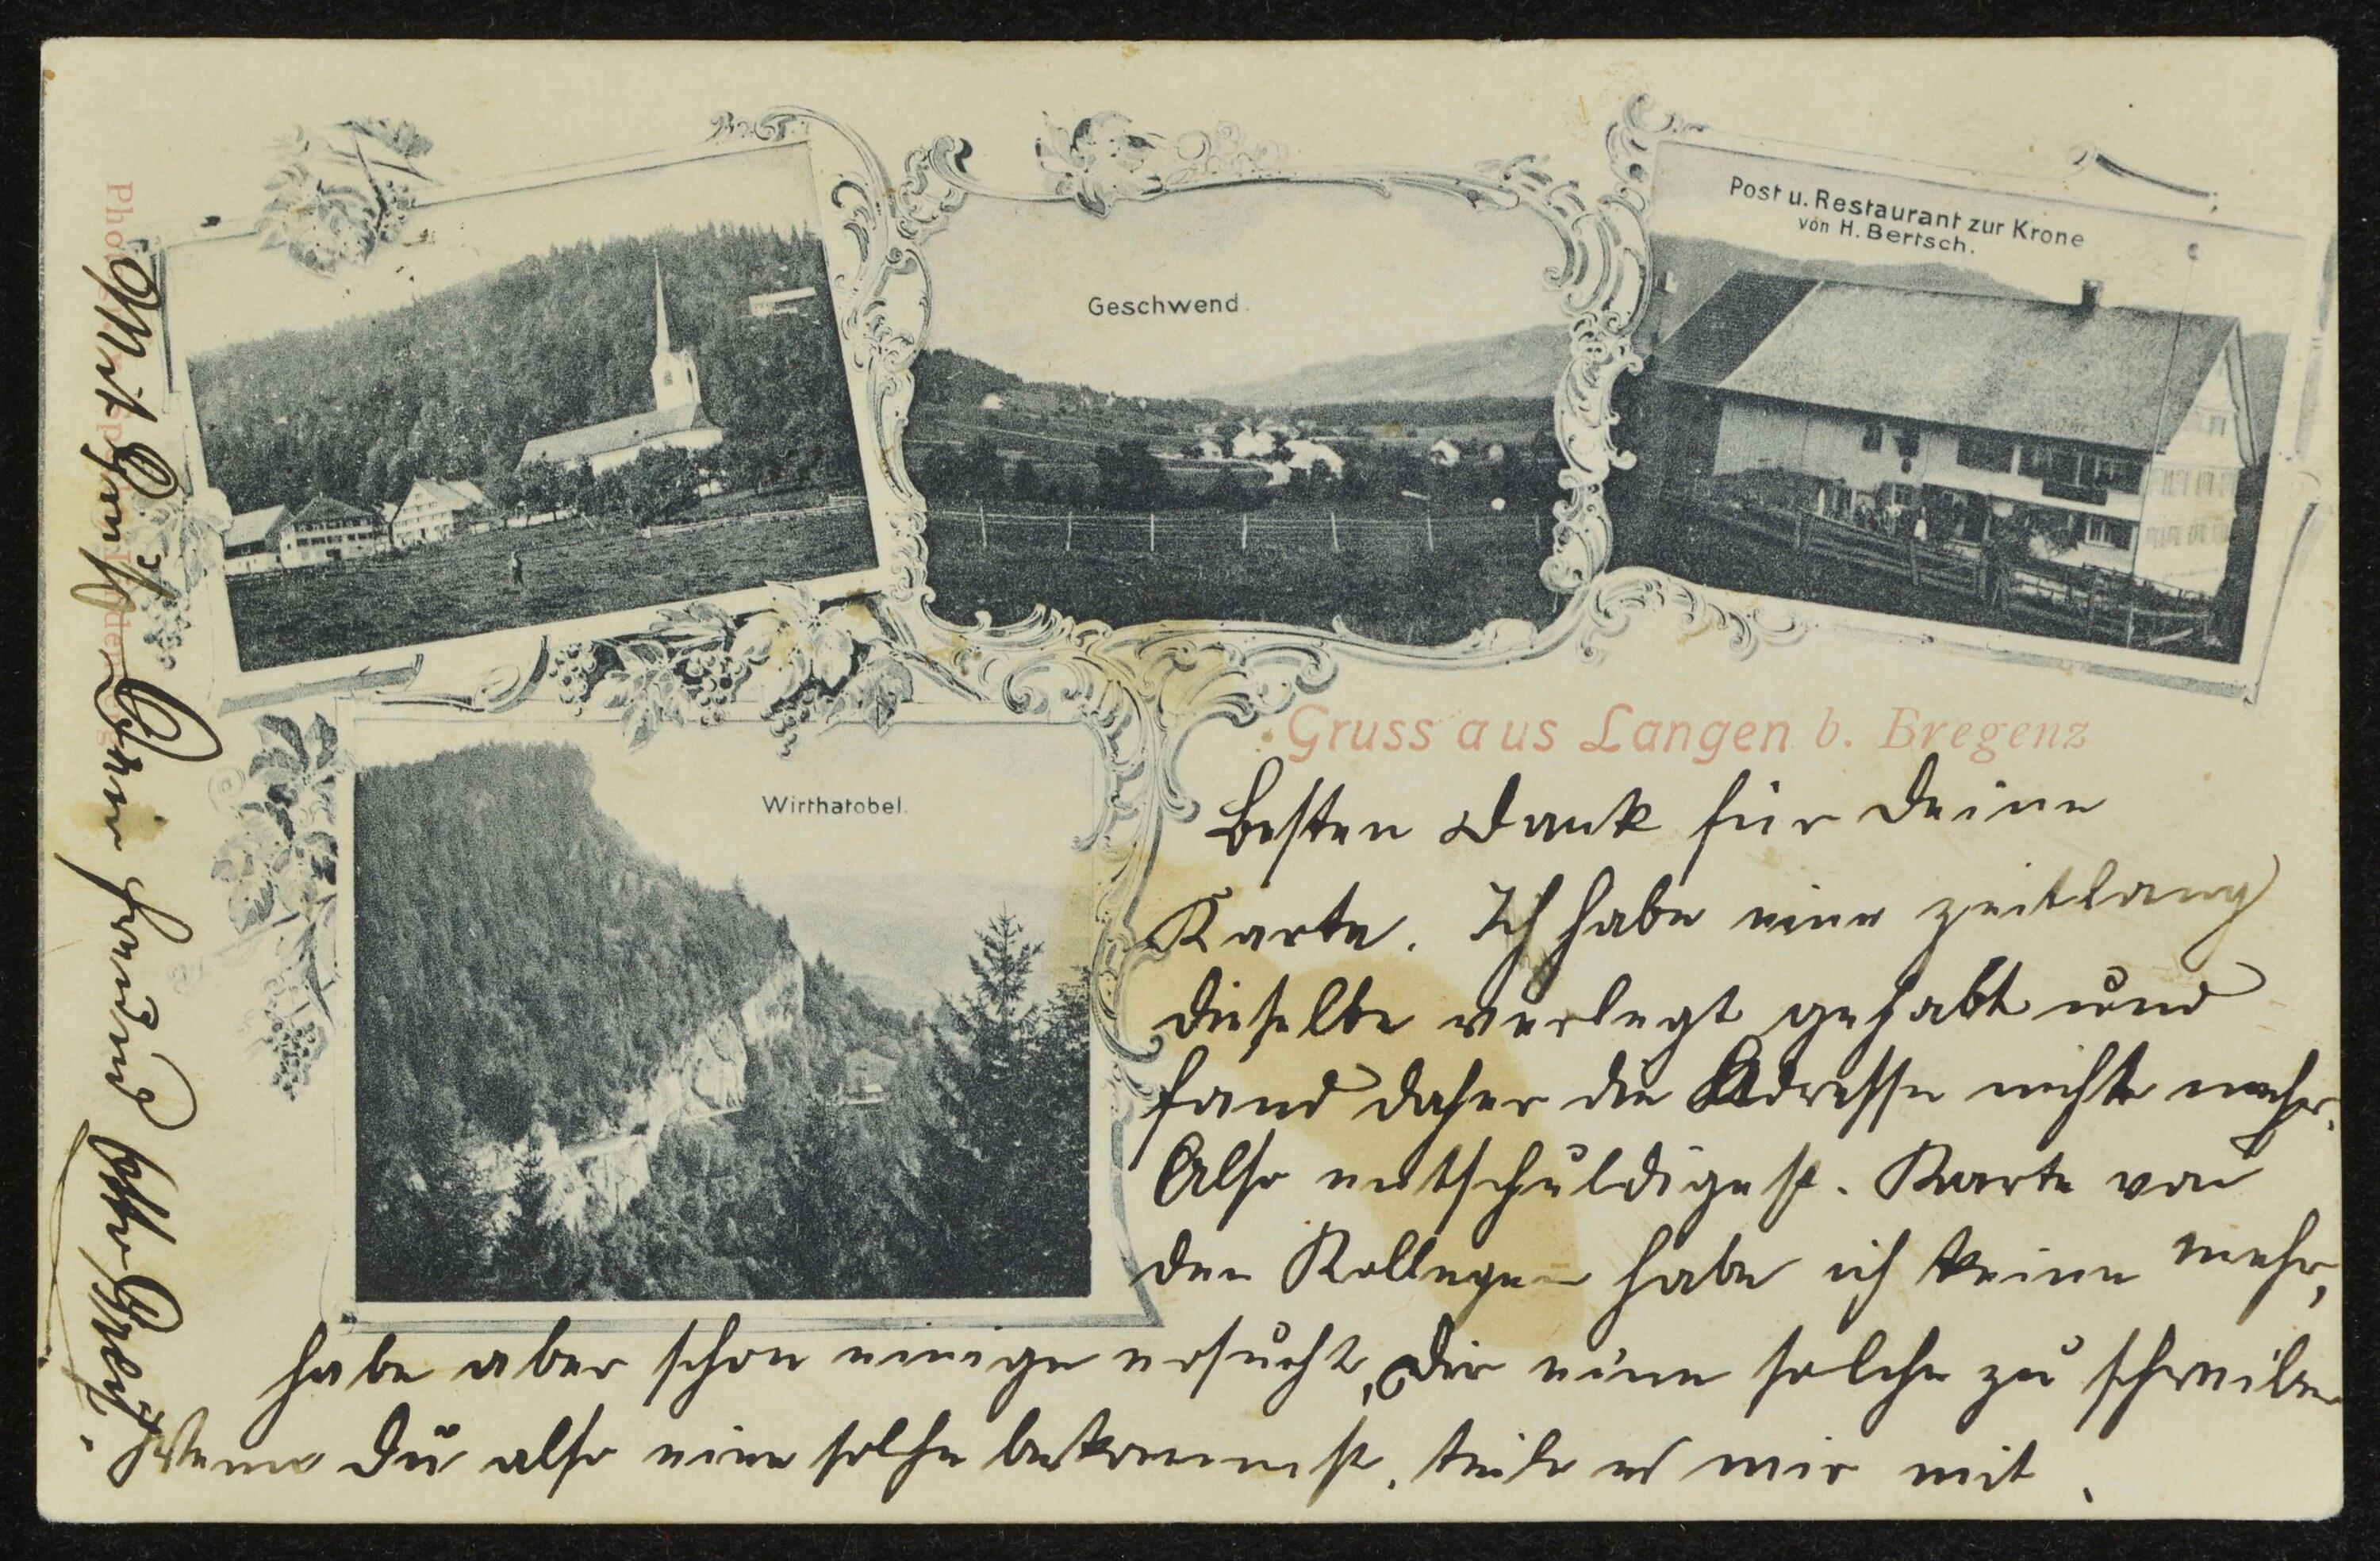 Geschwend.
Post u. Restaurant zur Krone
von H. Bertsch.
Wirthatobel.
Gruss aus Langen b. Bregenz
Besten Dank für Deine
Karte. Ich habe eine zeitlang
dieselbe verlegt gehabt und
fand daher die Adresse nicht mehr.
Also entschuldigest. Karte von
den Kollegen habe ich keine mehr,
habe aber schon einige ersucht, Dir eine solche zu schreiben
Wenn Du also eine solche bekommst, teile es mir mit.
Mit Gruß Dein Freund